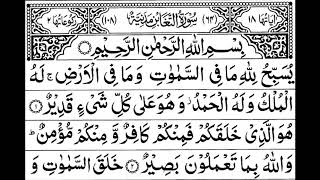 اٰیَاتُهَا ١٨ (٦٤) سُوْرَةُ التَّغَابُنِ مَدَنِیَّةٌ (١٠٨) رُكُوْعَاتُهَا ٢
بِسْمِ اللّٰهِ الرَّحْمٰنِ الرَّحِیْمِ
یُسَبِّحُ لِلّٰهِ مَا فِی السَّمٰوٰتِ وَمَا فِی الْاَرْضِ ۚ لَهُ
الْمُلْكُ وَلَهُ الْحَمْدُ ۫ وَهُوَ عَلٰی كُلِّ شَیْءٍ قَدِیْرٌ ۝١
هُوَ الَّذِیْ خَلَقَكُمْ فَمِنْكُمْ كَافِرٌ وَّمِنْكُمْ مُّؤْمِنٌ ؕ
وَاللّٰهُ بِمَا تَعْمَلُوْنَ بَصِیْرٌ ۝٢ خَلَقَ السَّمٰوٰتِ وَ